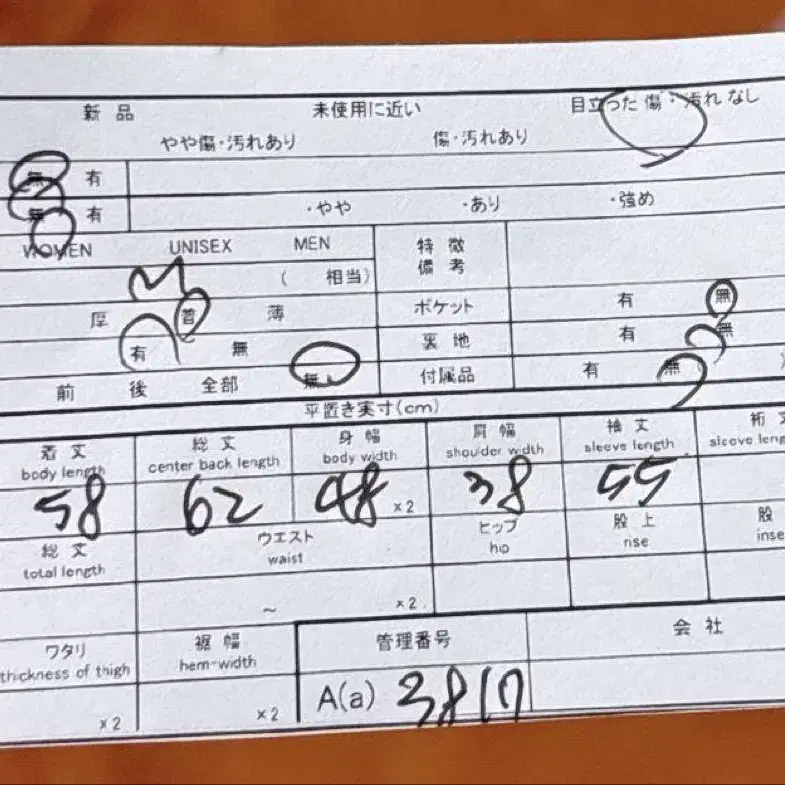 新品 未使用に近い 目立った傷・汚れなし
やや傷・汚れあり 傷・汚れあり
無 有
無 有 ・やや ・あり ・強め
WOMEN UNISEX MEN 特徴
備考
M ( 相当)
厚 普 薄 ポケット 有 無
有 無 裏地 有 無
前 後 全部 無 付属品 有 無 )
平置き実寸(cm)
着丈 総丈 身幅 肩幅 袖丈 裄丈
body length center back length body width shoulder width sleeve length sleeve leng
58 62 48 ×2 38 55
総丈 ウエスト ヒップ 股上 股
total length waist hip rise inse
~ ×2
ワタリ 裾幅 管理番号 会社
thickness of thigh hem-width
×2 ×2 A(a) 3817